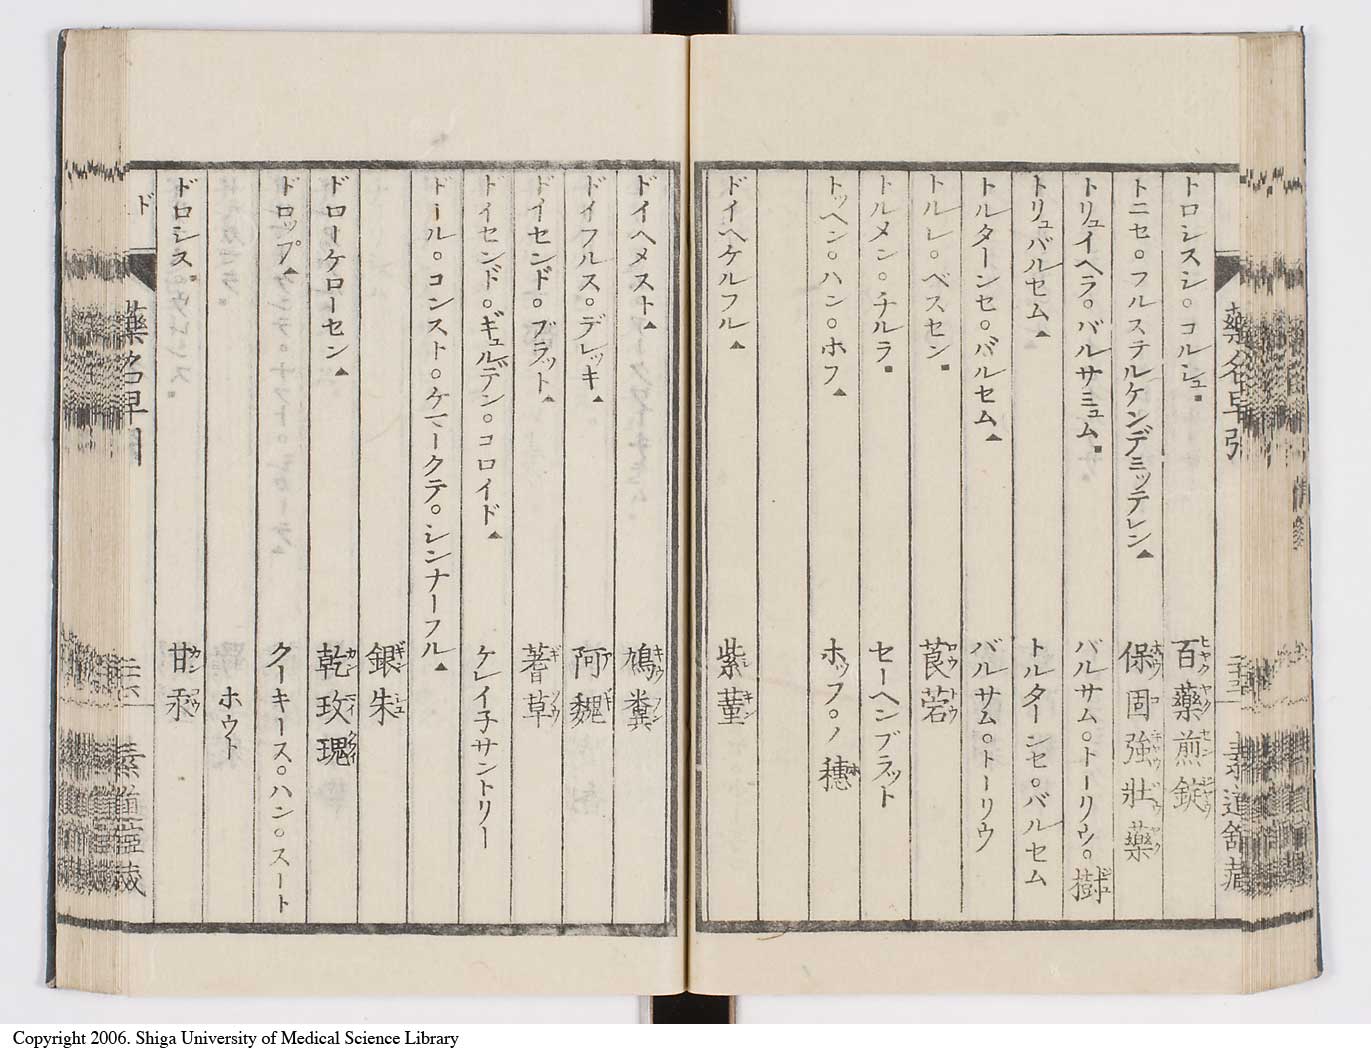 藥名早引
トロシスシ。コルシュ■ 百藥煎錠
トニセ。フルステルケンデミッテレン▲ 保固強壯藥
トリュイヘラ。バルサミュム■ バルサム。トーリウ。樹
トリュバルセム▲ トルターンセ。バルセム
トルターンセ。バルセム▲ バルサム。トーリウ
トルレ。ベスセン■ 莨菪
トルメン。チルラ■ セーヘンブラット
トッヘン。ハン。ホフ▲ ホップ。ノ穗
ドイヘケルフル▲ 紫菫
ドイヘメスト▲ 鳩糞
ドイフルス。デレッキ▲ 阿魏
ドイセンド。ブラット▲ 蓍草
ドイセンド。ギュルデン。コロイド▲ ケレイ子サントリー
ドール。コンスト。ケマークテ。シンナーフル▲
銀朱
ドローケローセン▲ 乾玫瑰
ドロップ▲ クーキース。ハン。スート
ホウト
ドロシス■ 甘汞
ド
藥名早引
Copyright 2006. Shiga University of Medical Science Library